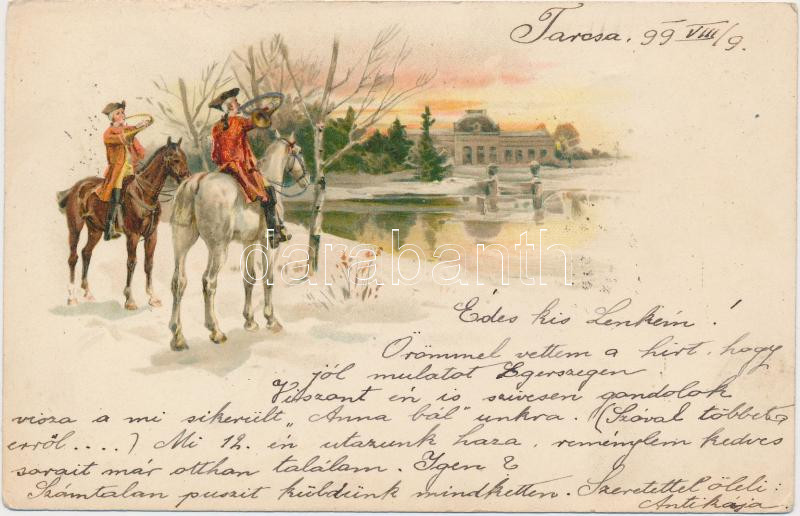 Tarcsa. 99 VIII/9.
darabanth
Édes kis Lenkém!
Örömmel vettem a hirt, hogy
jól mulatot Egerszegen
Viszont én is szivesen gondolok
visza a mi sikerült "Anna bál" unkra. (Szóval többet
erről ....) Mi 12. én utazunk haza, reménylem kedves
sorait már otthon találom. Igen?
Számtalan puszit küldünk mindketten. Szeretettel öleli:
Antikája.